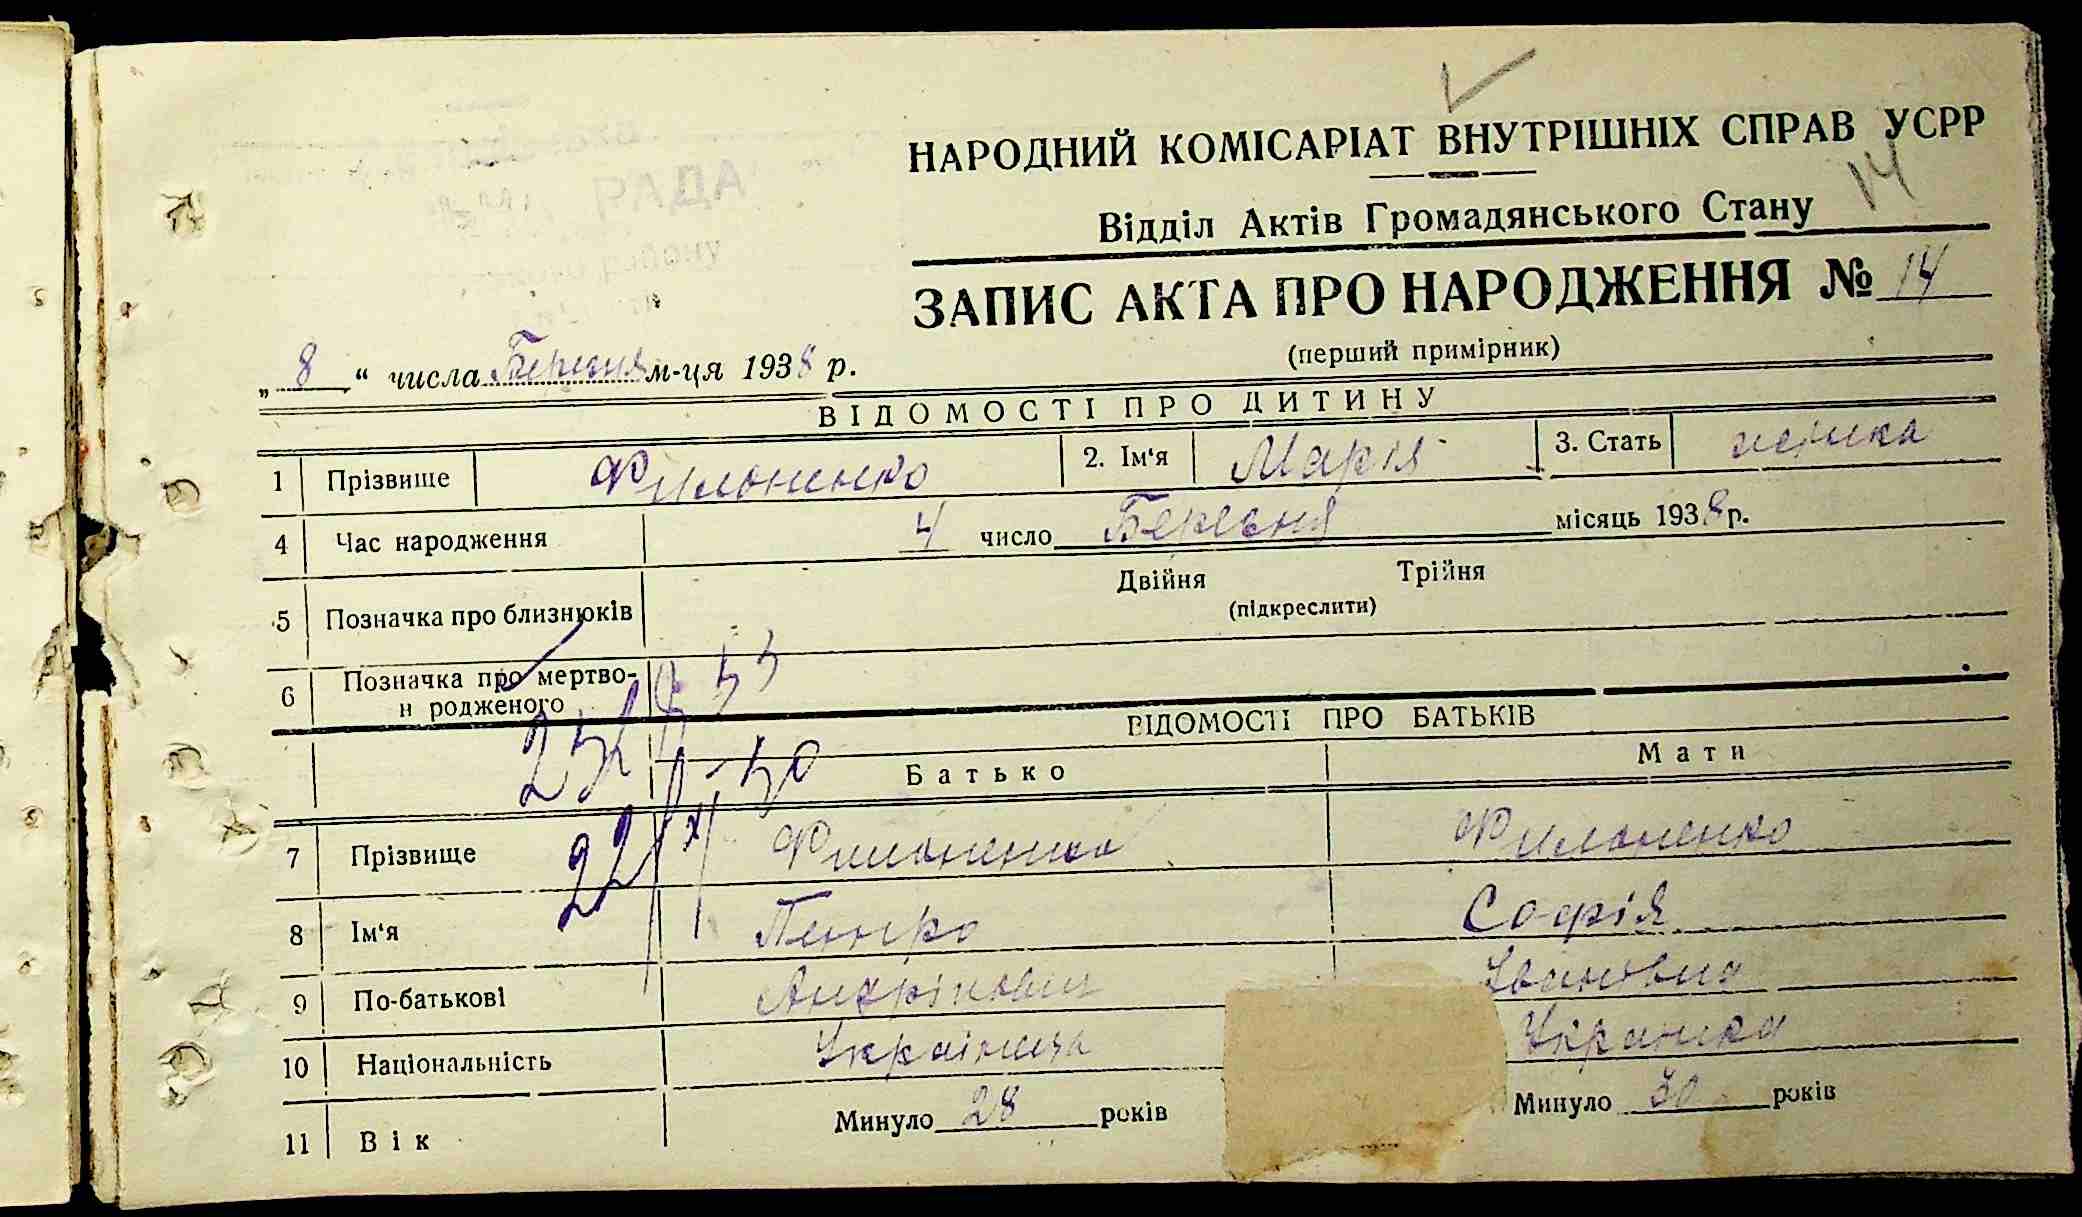 НАРОДНИЙ КОМІСАРІАТ ВНУТРІШНІХ СПРАВ УСРР
14
Відділ Актів Громадянського Стану
ЗАПИС АКТА ПРО НАРОДЖЕННЯ № 14
(перший примірник)
„ 8 “ числа Березня м-ця 1938 р.
ВІДОМОСТІ ПРО ДИТИНУ
1 Прізвище Филоненко 2. Ім‘я Марія 3. Стать
4 Час народження 4 число Березня місяць 1938 р.
5 Позначка про близнюків Двійня Трійня
(підкреслити)
6 Позначка про мертво-
н родженого
ВІДОМОСТІ ПРО БАТЬКІВ
Батько Мати
7 Прізвище Филоненко Филоненко
8 Ім‘я Петро Софія
9 По-батькові Андрійович Івановна
10 Національність Українець Украинка
11 Вік Минуло 28 років Минуло 30 років
РАДА
району